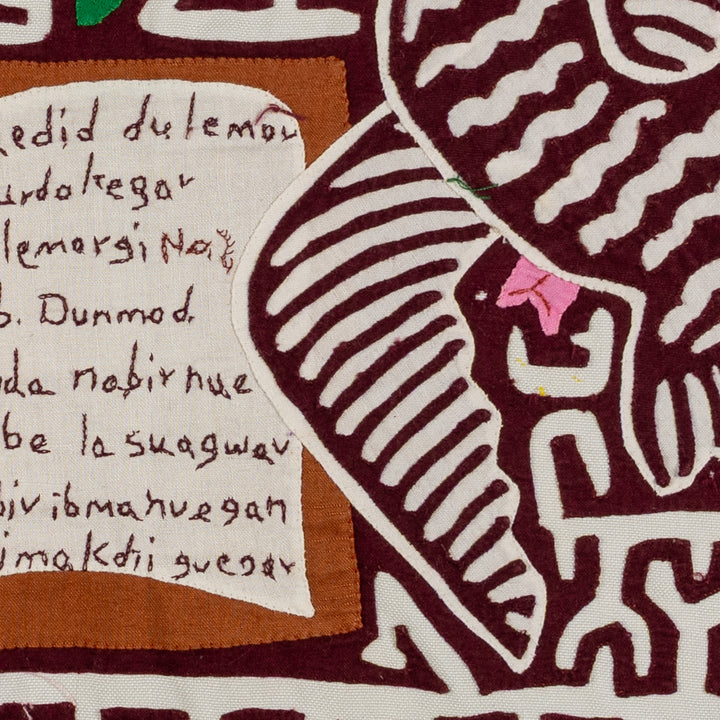 edid dulemov
urdakegar
lemargi Na
b. Dunmad.
da nabirhue
be la suagwav
ivibmahuegan
imakdii guegar